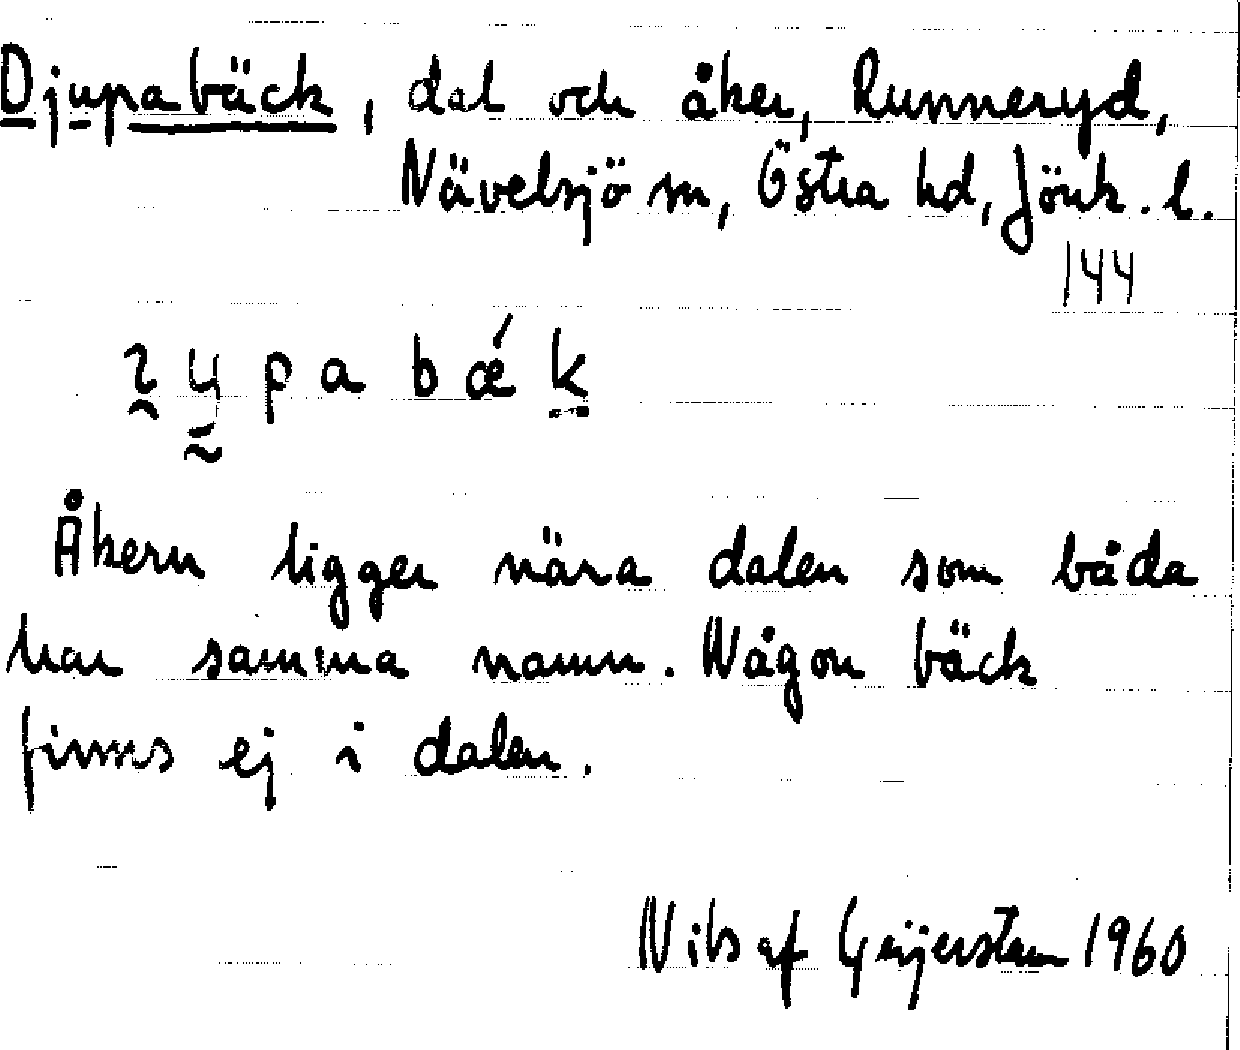 Djupabäck, dal och åker, Runneryd,
Nävelsjö sn, Östra hd, Jönk. l.
144
ypabǽk
Åkern ligger nära dalen som båda
har samma namn. Någon bäck
finns ej i dalen.
Nils af Geijerstam 1960